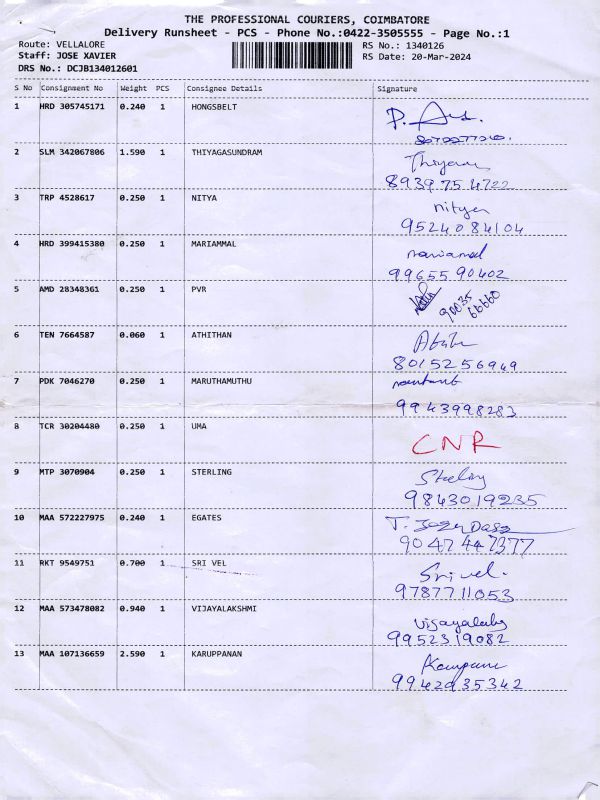 THE PROFESSIONAL COURIERS, COIMBATORE
Delivery Runsheet - PCS - Phone No.:0422-3505555 - Page No.:1
Route: VELLALORE RS No.: 1340126
Staff: JOSE XAVIER RS Date: 20-Mar-2024
DRS No.: DCJB134012601
S No Consignment No Weight PCS Consignee Details Signature
1 HRD 305745171 0.240 1 HONGSBELT
2 SLM 342067806 1.590 1 THIYAGASUNDRAM
8939754722
3 TRP 4528617 0.250 1 NITYA Nitya
9524084104
4 HRD 399415380 0.250 1 MARIAMMAL
9965590402
5 AMD 28348361 0.250 1 PVR
90035
66660
6 TEN 7664587 0.060 1 ATHITHAN
8015256949
7 PDK 7046270 0.250 1 MARUTHAMUTHU
9943998283
8 TCR 30204480 0.250 1 UMA CNR
9 MTP 3070904 0.250 1 STERLING Sterling
9843019235
10 MAA 572227975 0.240 1 EGATES
9047447377
11 RKT 9549751 0.700 1 SRI VEL Sri vel.
9787711053
12 MAA 573478082 0.940 1 VIJAYALAKSHMI
9952319082
13 MAA 107136659 2.590 1 KARUPPANAN
9942935342